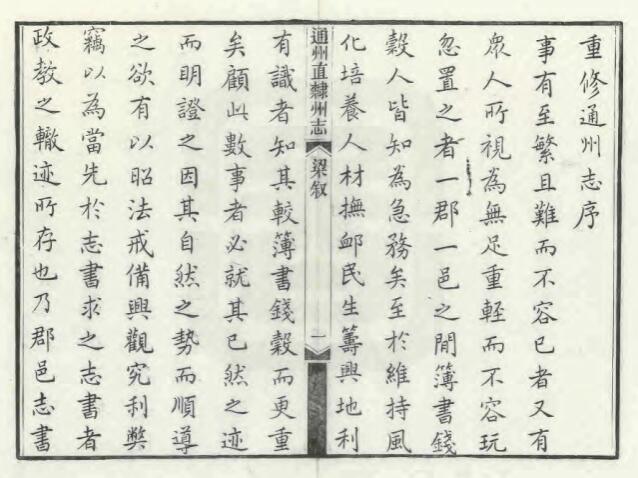 重修通州志序
事有至繁且難而不容已者又有
衆人所視為無足重輕而不容玩
忽置之者一郡一邑之間簿書錢
穀人皆知為急務矣至於維持風
化培養人材撫卹民生籌興地利
通州直隸州志
梁叙
一
有識者知其較簿書錢穀而更重
矣顧此數事者必就其已然之迹
而明證之因其自然之勢而順導
之欲有以昭法戒備興觀究利弊
竊以為當先於志書求之志書者
政教之轍迹所存也乃郡邑志書